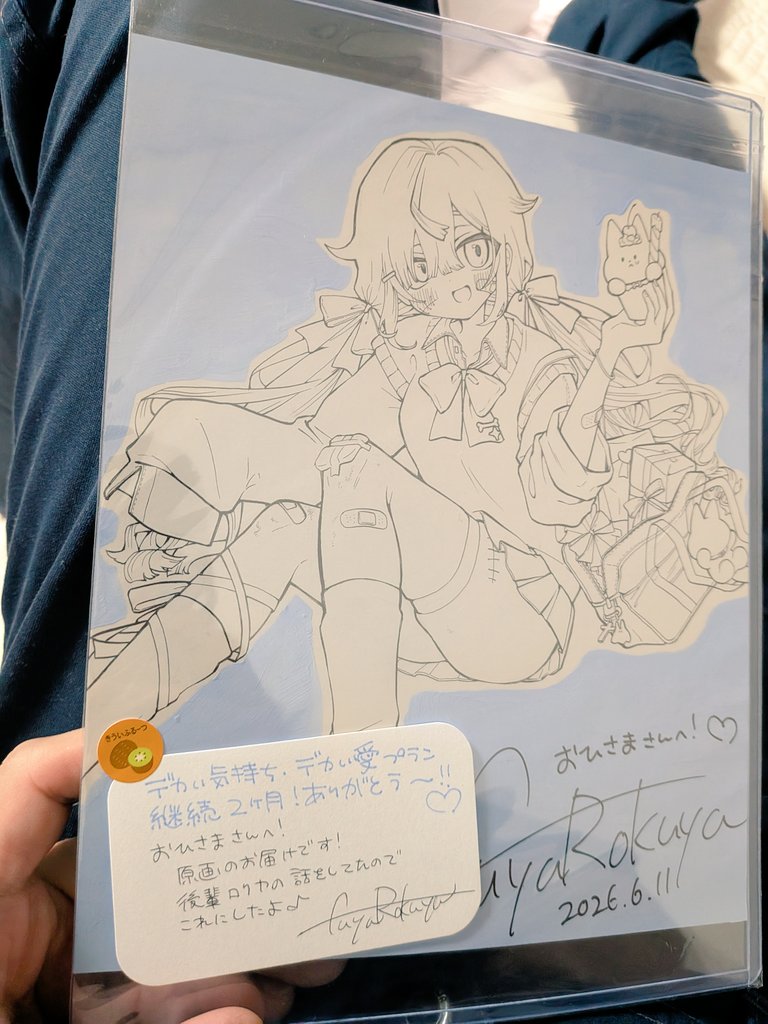 おひさまさんへ!♡
uyaRokuya
2026.6.11
きういふるーつ
デカい気持ち・デカい愛プラン
継続2ヶ月!ありがとう〜!!♡
おひさまさんへ!
原画のお届けです!
後輩ロクヤの話をしてたので
これにしたよ♪
FuyaRokuya